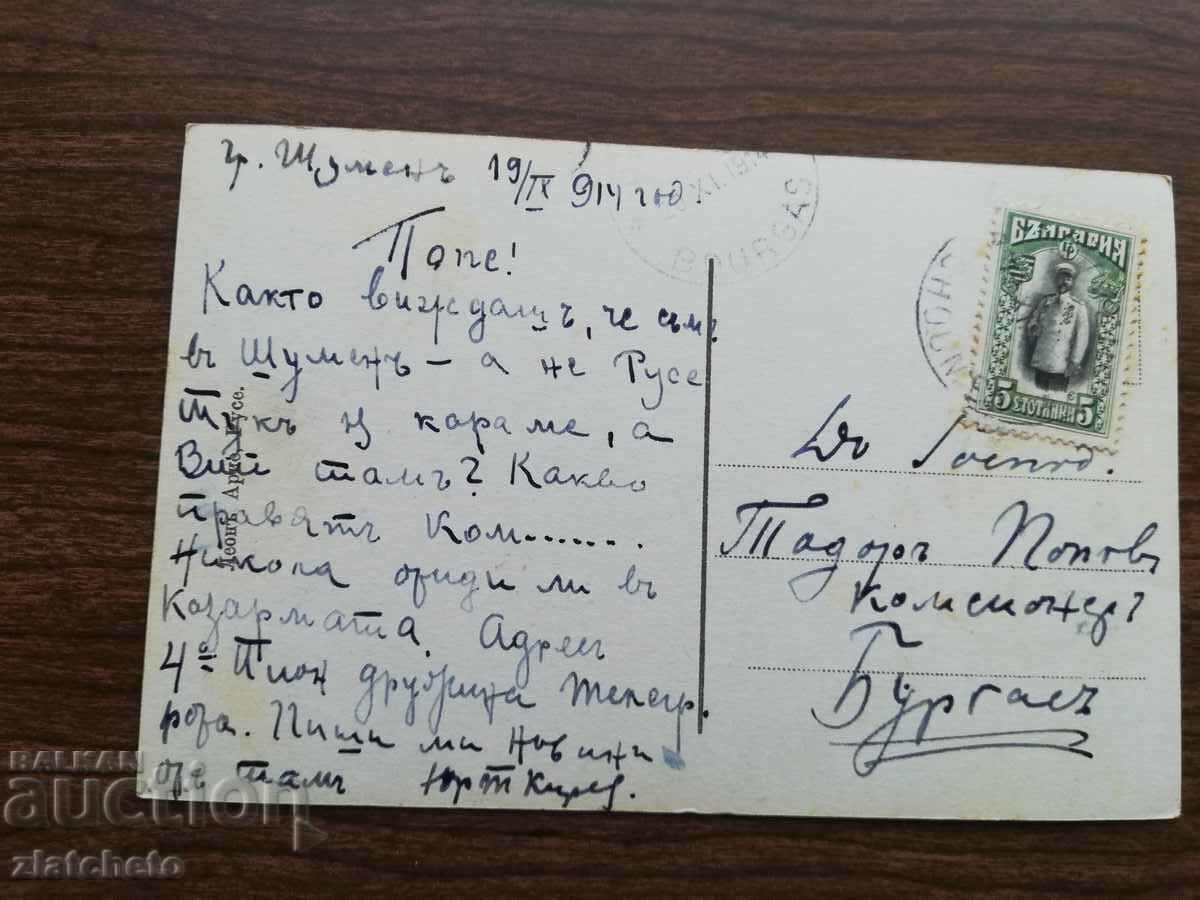 гр. Шуменъ 19/IX 914 год.
Попе!
Както виждашъ, че съмъ
въ Шуменъ – а не Русе
Тукъ я караме, а
Вий тамъ? Какво
правятъ Ком.......
Никола отиди ли въ
Казармата. Адресъ
4º Пион дружина Телегр.
рота. Пиши ми новини
от тамъ
Леонъ Арие. Русе.
XI.1914
BOURGAS
БЪЛГАРИЯ
5 СТОТИНКИ 5
До Господ.
Тодоръ Поповъ
комисионеръ
Бургасъ
BALKAN
auction
zlatcheto